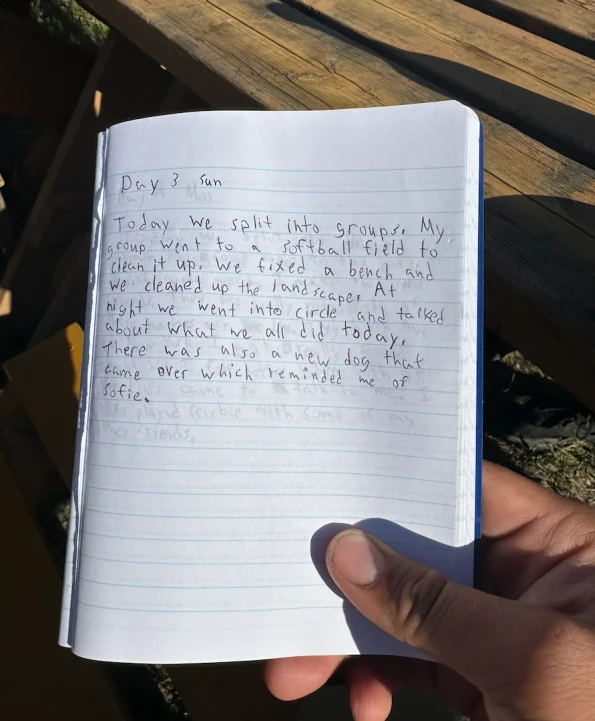 Day 3 Sun
Today we split into groups. My
group went to a softball field to
clean it up. We fixed a bench and
we cleaned up the landscape. At
night we went into circle and talked
about what we all did today.
There was also a new dog that
came over which reminded me of
Sofie.
played frisbie with some of my
friends.